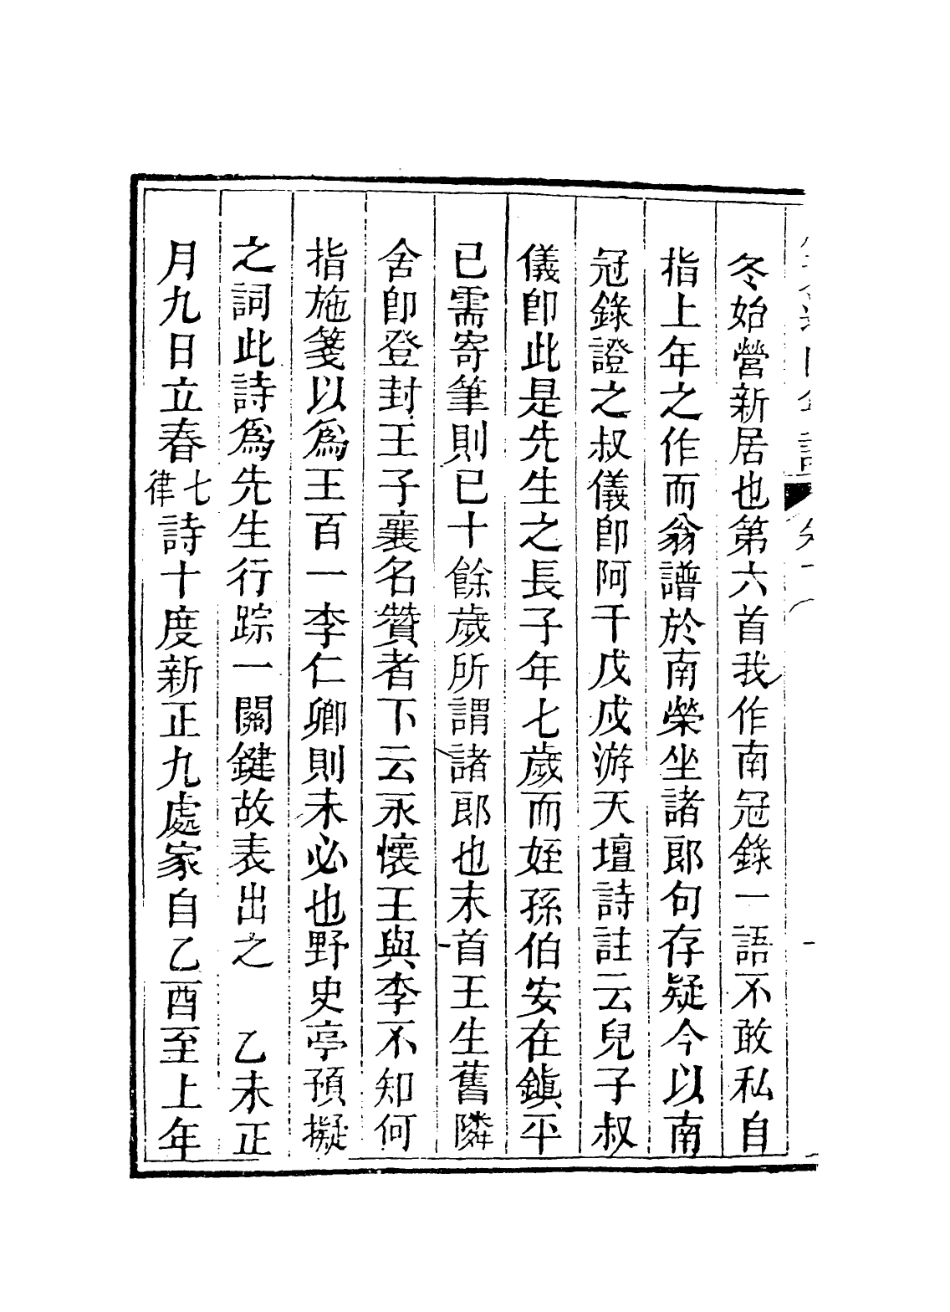 冬始營新居也第六首我作南冠錄一語不敢私自
指上年之作而翁譜於南榮坐諸郎句存疑今以南
冠錄證之叔儀卽阿千戊戌游天壇詩註云兒子叔
儀卽此是先生之長子年七歲而姪孫伯安在鎭平
已需寄筆則已十餘歲所謂諸郎也末首王生舊隣
舍卽登封王子襄名贊者下云永懷王與李不知何
指施箋以爲王百一李仁卿則未必也野史亭預擬
之詞此詩爲先生行踪一關鍵故表出之　乙未正
月九日立春七律詩十度新正九處家自乙酉至上年